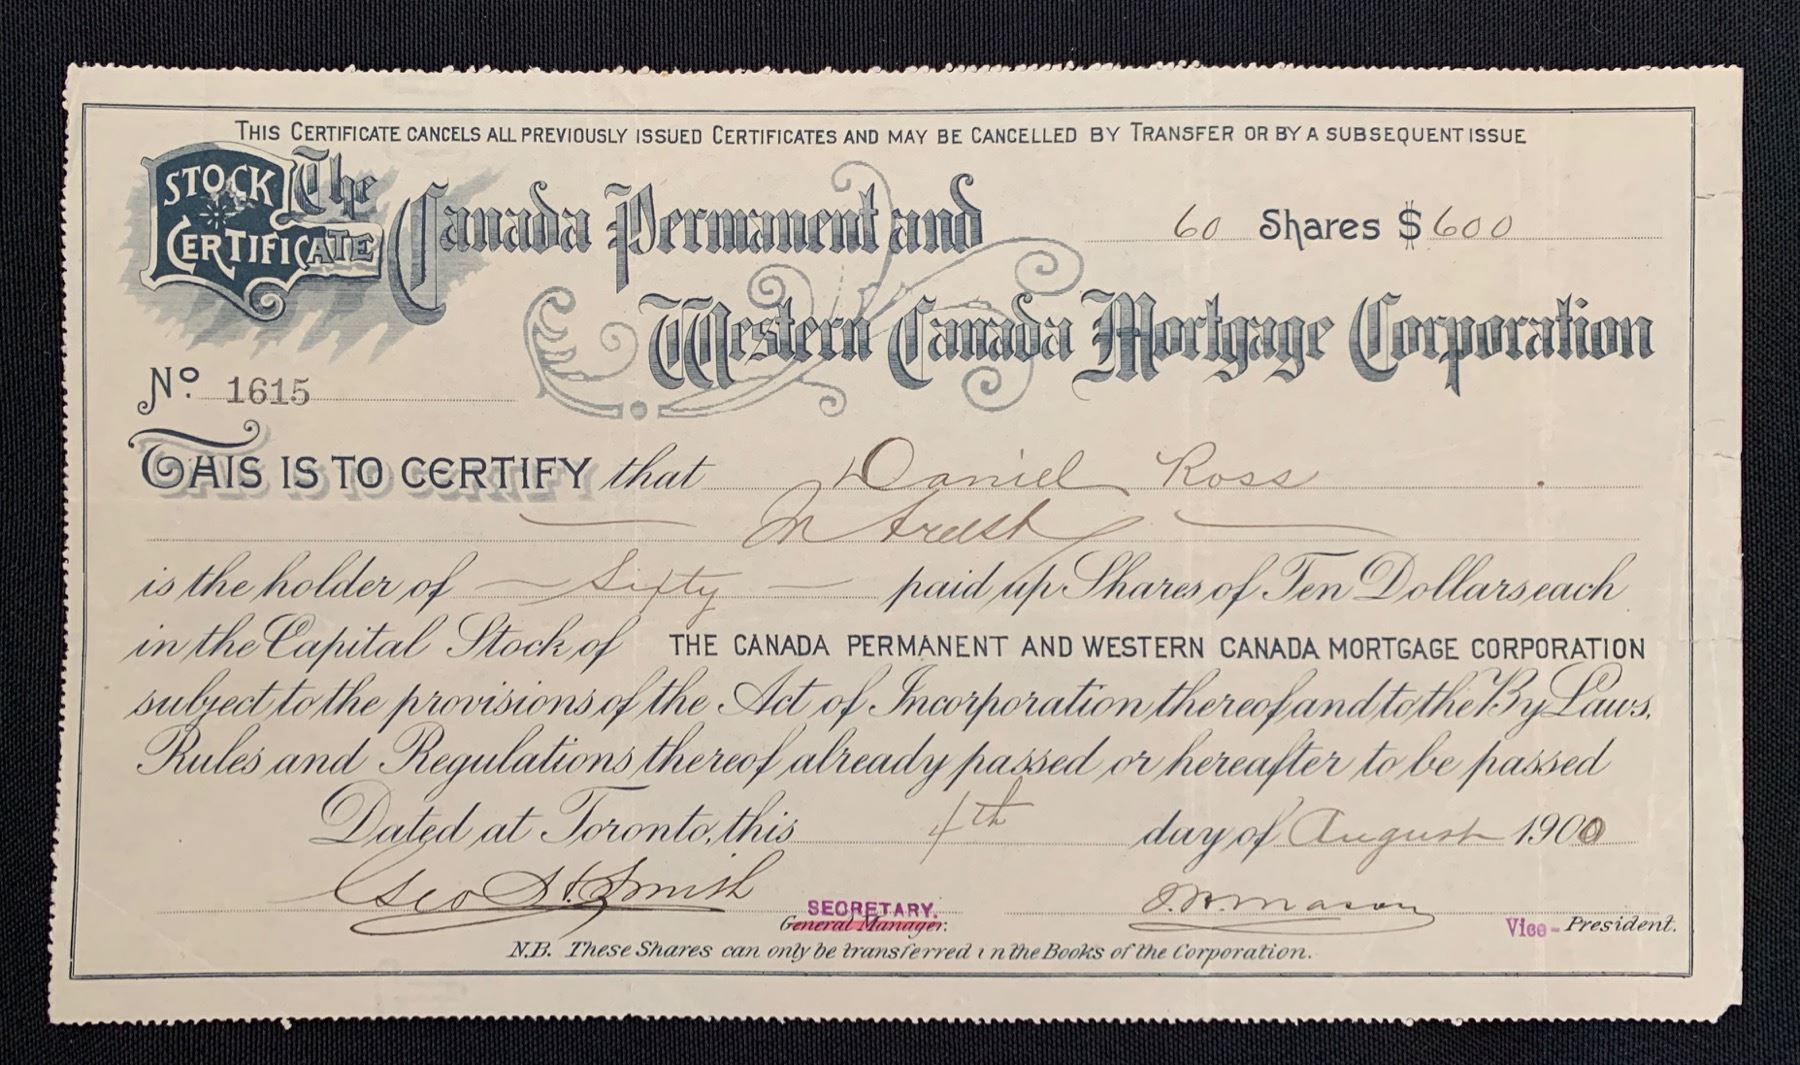 THIS CERTIFICATE CANCELS ALL PREVIOUSLY ISSUED CERTIFICATES AND MAY BE CANCELLED BY TRANSFER OR BY A SUBSEQUENT ISSUE
STOCK CERTIFICATE
The Canada Permanent and
60 Shares $600
Western Canada Mortgage Corporation
No. 1615
THIS IS TO CERTIFY that Daniel Ross
In Trust
is the holder of Sixty paid up Shares of Ten Dollars each
in the Capital Stock of THE CANADA PERMANENT AND WESTERN CANADA MORTGAGE CORPORATION
subject to the provisions of the Act of Incorporation thereof and to the By Laws,
Rules and Regulations thereof already passed or hereafter to be passed
Dated at Toronto, this 4th day of August 1900
Geo H. Smith
SECRETARY.
General Manager.
J. H. Mason
Vice-President.
N.B. These Shares can only be transferred in the Books of the Corporation.